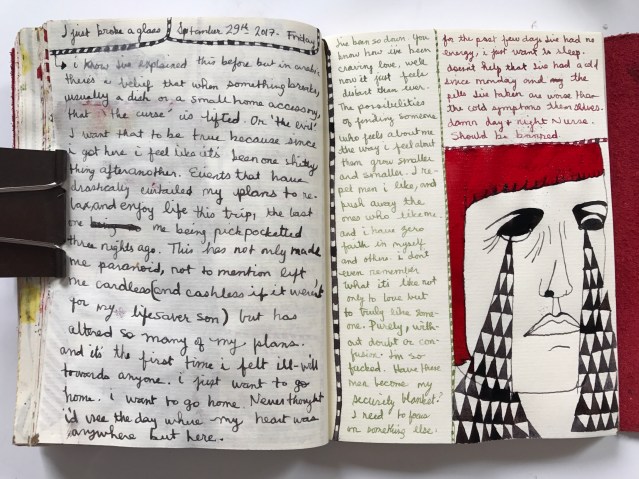 I just broke a glass
September 29th 2017. Friday
i know i've explained this before but in arabic
there's a belief that when something breaks,
usually a dish or a small home accessory,
that 'the curse' is lifted. Or 'the evil'
I want that to be true because since
i got here i feel like it's been one shitty
thing after another. Events that have
drastically curtailed my plans to re-
lax and enjoy life this trip, the last
one me being pick pocketed
three nights ago. This has not only made
me paranoid, not to mention left
me cardless (and cashless if it weren't
for my lifesaver son) but has
altered so many of my plans.
and it's the first time i felt ill-will
towards anyone. i just want to go
home. i want to go home. Never thought
i'd see the day where my heart was
anywhere but here.
I've been so down. You
know how i've been
craving love, well
now it just feels
distant then ever.
The possibilities
of finding someone
who feels about me
the way i feel about
them grow smaller
and smaller. I re-
pel men i like, and
push away the
ones who like me.
and i have zero
faith in myself
and others. i don't
even remember
what it's like not
only to love but
to truly like some-
one. Purely, with-
out doubt or con-
fusion. I'm so
fucked. Have these
men become my
security blanket?
I need to focus
on something else.
for the past few days I've had no
energy, i just want to sleep.
doesn't help that i've had a cold
since monday and the
pills i've taken are worse than
the cold symptoms themselves.
damn day & night Nurse.
Should be banned.